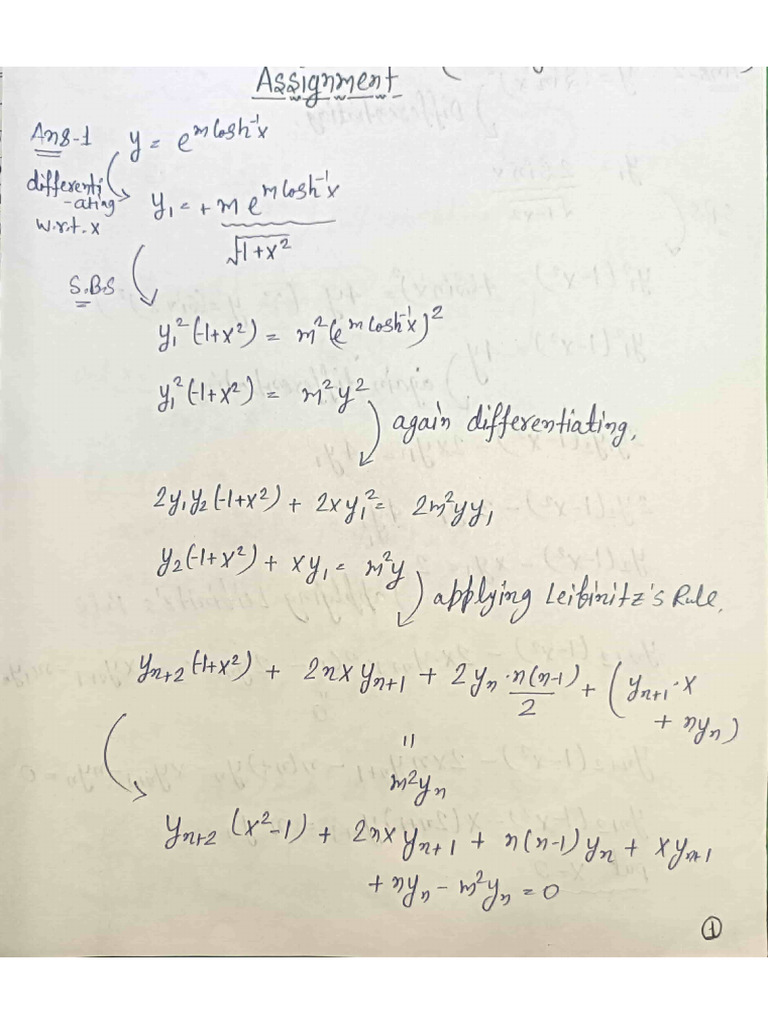 Assignment
Ans-1 y = e^{m cosh^{-1}x}
differenti
-ating
w.r.t. x
y₁ = + m e^{m cosh^{-1}x}
√1+x²
S.B.S.
y₁²(-1+x²) = m²(e^{m cosh^{-1}x})²
y₁²(-1+x²) = m²y²
again differentiating,
2y₁y₂(-1+x²) + 2xy₁² = 2m²yy₁
y₂(-1+x²) + xy₁ = m²y
applying Leibinitz's Rule,
yₙ₊₂(-1+x²) + 2nxyₙ₊₁ + 2yₙ · n(n-1)/2 + (yₙ₊₁ · x
+ nyₙ)
=
m²yₙ
yₙ₊₂ (x²-1) + 2nxyₙ₊₁ + n(n-1)yₙ + xyₙ₊₁
+ nyₙ - m²yₙ = 0
1